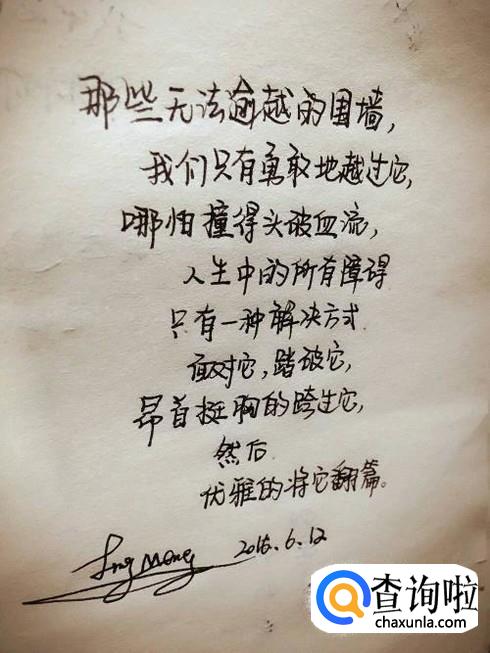 那些无法逾越的围墙，
我们只有勇敢地越过它，
哪怕撞得头破血流，
人生中的所有障碍
只有一种解决方式
面对它，踏破它，
昂首挺胸的跨过它，
然后
优雅的将它翻篇。
2016.6.12
查询啦
chaxunla.com